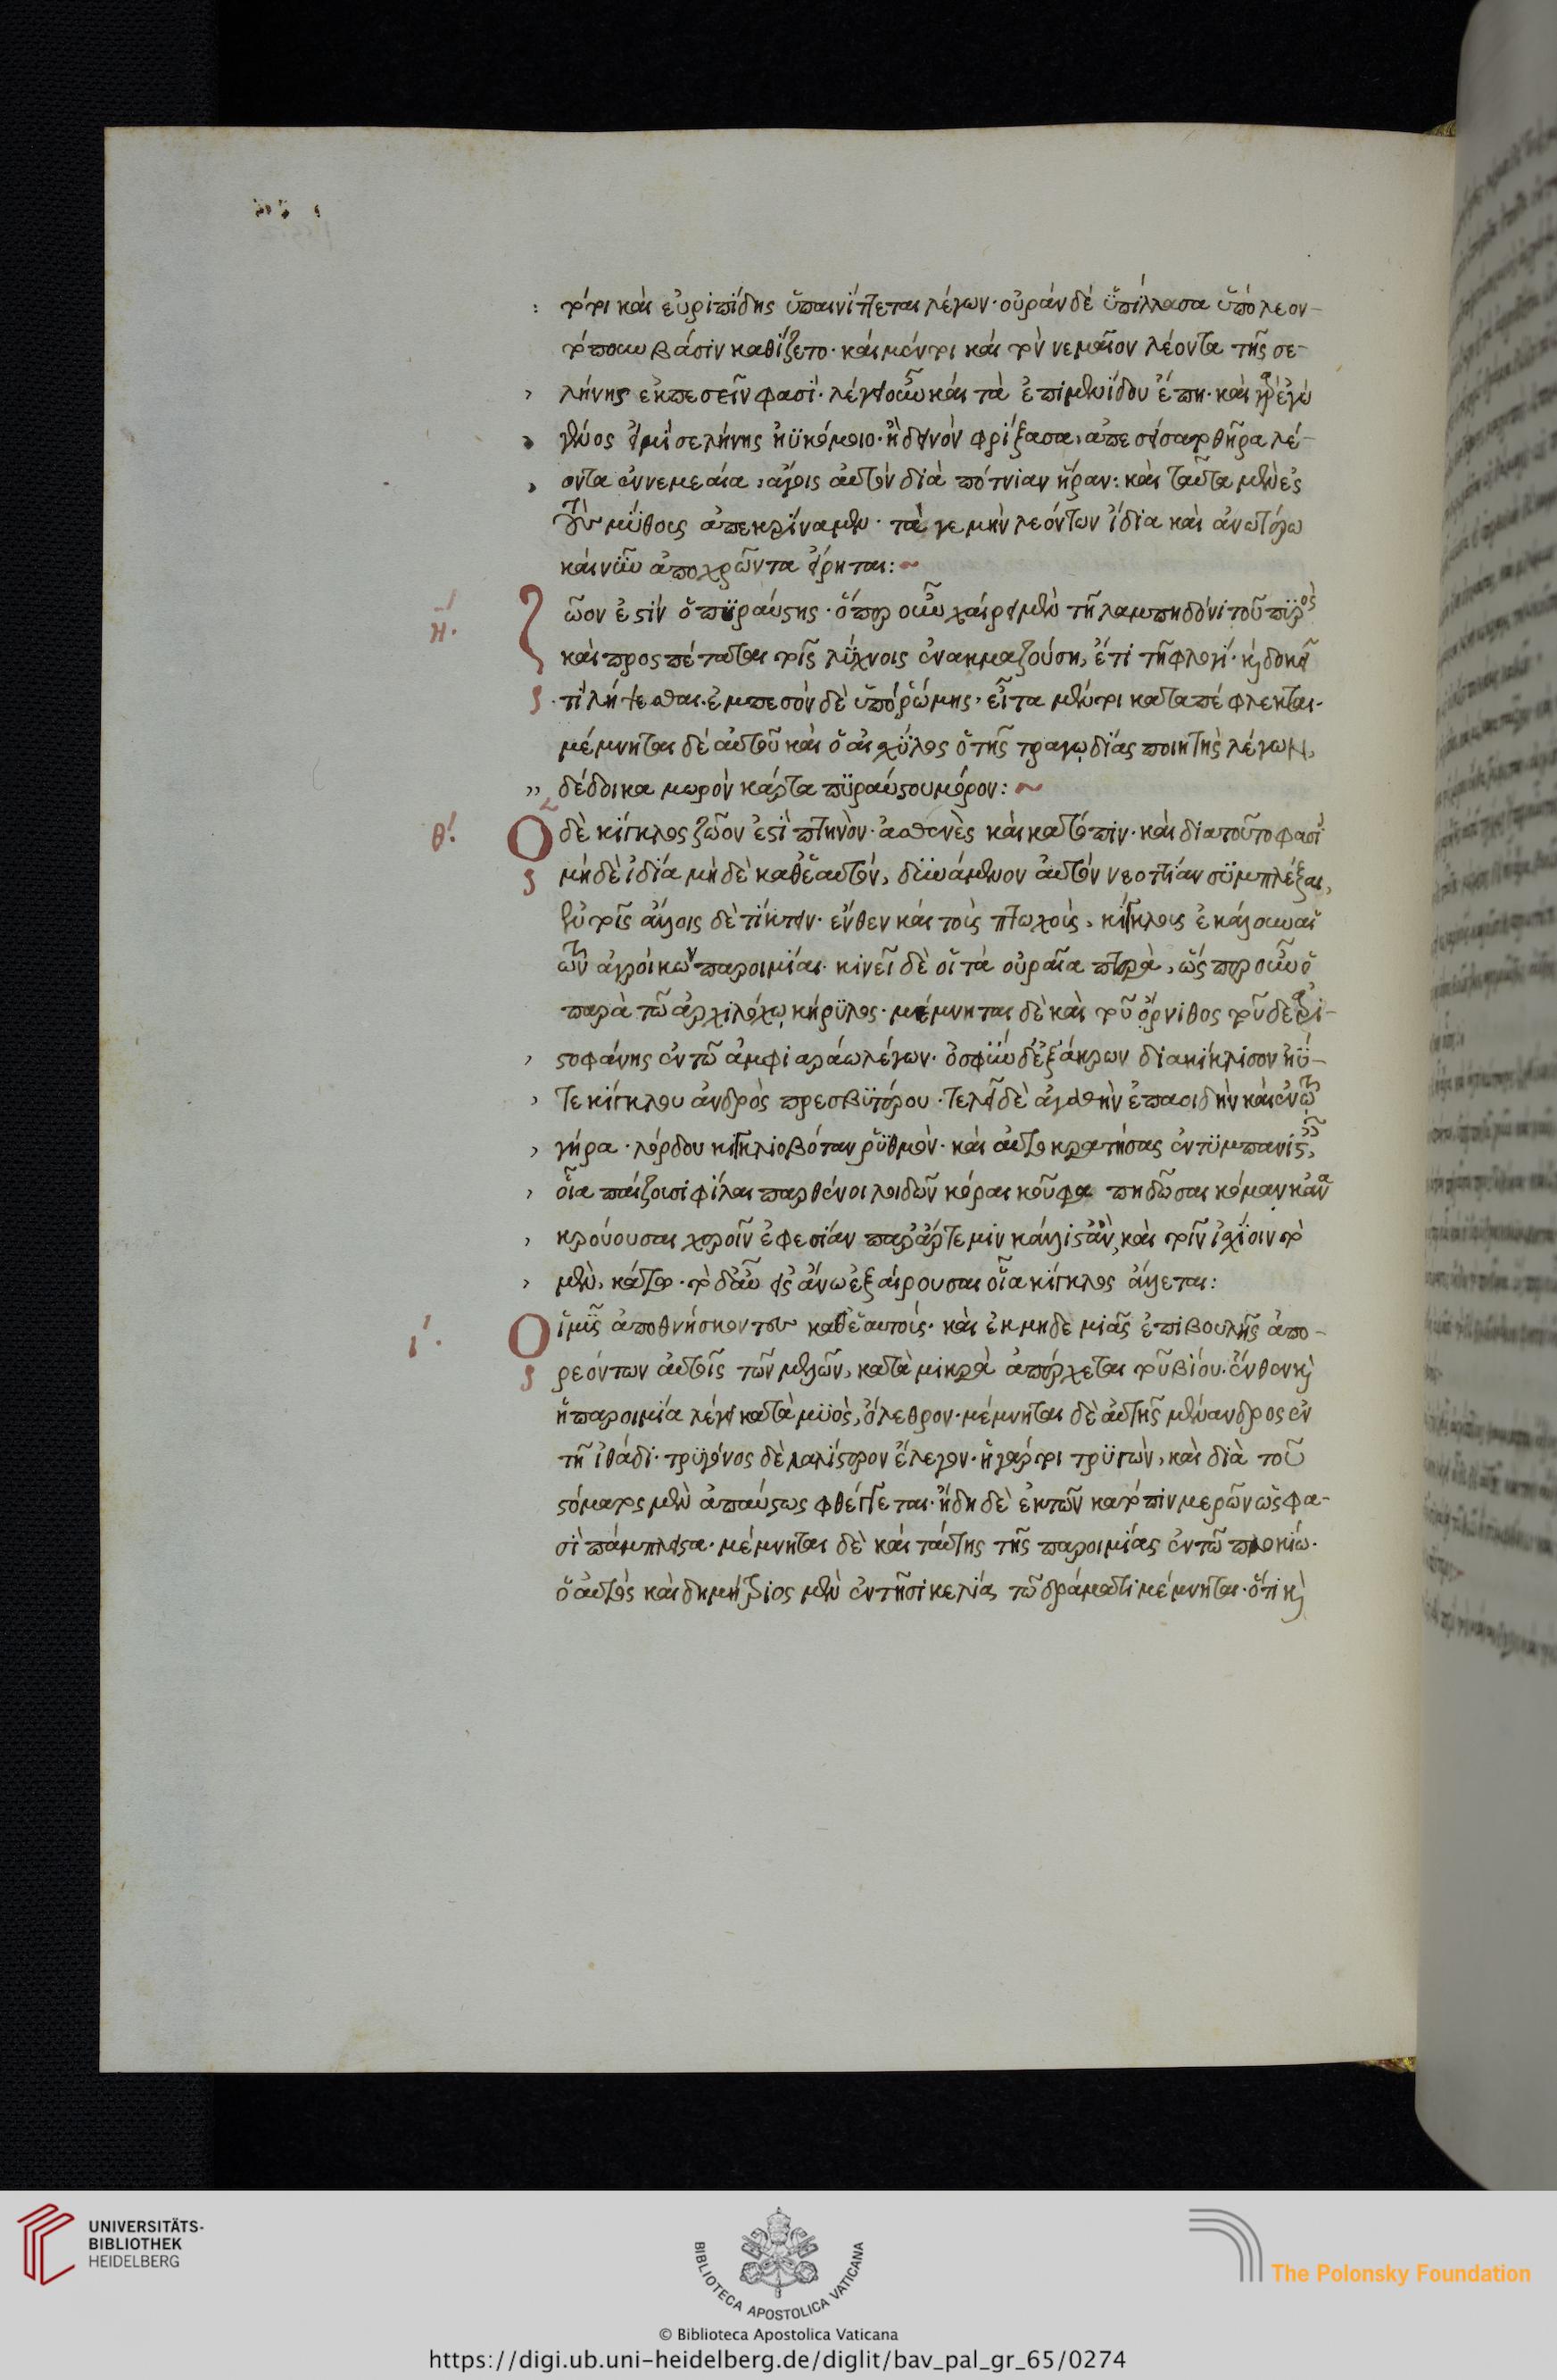 τότι καὶ εὐριπίδης ὑπαινίττεται λέγων· οὐρὰν δὲ ὑπίλλασα ὑπὸ λεον-
τόπουν βάσιν καθίζετο· καὶ μέντοι καὶ τὸν νεμαῖον λέοντα τῆς σε-
λήνης ἐκπεσεῖν φασὶ· λέγει οὖν καὶ τὰ ἐπιμενίδου ἔπη· καὶ γὰρ ἐγὼ
γένος εἰμὶ σελήνης ἠϋκόμοιο· ἣ δεινὸν φρίξασα, ἀπεσείσατο θῆρα λέ-
οντα ἐν νεμεαία, αὐτὸν διὰ πότνιαν ἥραν: καὶ ταῦτα μὲν ἐς
τοὺς μύθους ἀποκρίναμεν· τά γε μὴν λεόντων ἴδια καὶ ἀνωτέρω
καὶ νῦν ἀποχρῶντα εἴρηται:
η΄. ζῶον ἐστὶν ὁ πυραύστης· ὅπερ οὖν χαίρει μὲν τῆ λαμπηδόνι τοῦ πυρὸς
καὶ προσπέταται τοῖς λύχνοις ἐνακμαζούση, ἔτι τῆ φλογί· καὶ δοκεῖ
τι λήψεσθαι. ἐμπεσὸν δὲ ὑπὸ ῥώμης, εἶτα μέντοι καταπέφλεκται·
μέμνηται δὲ αὐτοῦ καὶ ὁ αἰσχύλος ὁ τῆς τραγῳδίας ποιητὴς λέγων,
δέδοικα μωρὸν κάρτα πυραύστου μόρον:
θ΄. Ὁ δὲ κίγκλος ζῶον ἐστὶ πτηνὸν· ἀσθενὲς καὶ κατόπιν· καὶ διατοῦτο φασὶ
μὴ δὲ ἰδία μὴ δὲ καθ' ἑαυτὸν, δυνάμενον αὐτὸν νεοττιὰν συμπλέξαι,
ἐν τοῖς ἄλλοις δὲ τίκτειν· ἔνθεν καὶ τοὺς πτωχοὺς, κίγκλους ἐκάλουν αἱ
τῶν ἀγροίκων παροιμίαι· κινεῖ δὲ οἱ τὰ οὐραῖα πτερὰ, ὥσπερ οὖν ὁ
παρὰ τῶ ἀρχιλόχῳ κηρύλος· μέμνηται δὲ καὶ τοῦ ὄρνιθος τοῦδε ἀρι-
στοφάνης ἐν τῶ ἀμφιαράω λέγων· ὀσφὺν δ' ἐξ ἄκρων διακίκλισον ἠΰ-
τε κίγκλου ἀνδρὸς πρεσβυτέρου· τελεῖ δὲ ἀγαθὴν ἐπαοιδὴν καὶ ἐν τῶ
γήρα· λόρδου κιγκλιοβόταν ῥυθμόν· καὶ αὐτοκρατήσας ἐν τυμπανισταῖς,
οἷα παίζουσι φίλαι παρθένοι λοιδῶν κόραι κοῦφα πηδῶσαι κόμαν κἂν
κρούουσαι χεροῖν ἐφεσίαν παρ' ἄρτεμιν κάλλισταν, καὶ τοῖν ἰσχίοιν τὸ
μὲν, κάτω· τὸ δ' αὖ εἰς ἄνω ἐξαίρουσαι οἷα κίγκλος ἅλλεται:
ι΄. Οἱ μῦς ἀποθνήσκοντες καθ' ἑαυτοὺς· καὶ ἐκ μηδε μιᾶς ἐπιβουλῆς ἀπο-
ρεόντων αὐτοῖς τῶν μελῶν, κατὰ μικρὰ ἀπέρχεται τοῦ βίου. ἔνθεν καὶ
ἡ παροιμία λέγει κατὰ μυὸς, ὄλεθρον· μέμνηται δὲ αὐτῆς μένανδρος ἐν
τῆ ἰθάδι· τρυγόνος δὲ λαλίστερον ἔλεγον· ἡ γάρ τοι τρυγὼν, καὶ διὰ τοῦ
στόματος μὲν ἀπαύστως φθέγγεται· ἤδη δὲ ἐκ τῶν κατόπιν μερῶν ὥς φα-
σὶ πάμπλειστα· μέμνηται δὲ καὶ ταύτης τῆς παροιμίας ἐν τῶ πλοκίω.
ὁ αὐτὸς καὶ δημήτριος μὲν ἐν τῆ σικελία τῶ δράματι μέμνηται· ὅτι καὶ
UNIVERSITÄTS-
BIBLIOTHEK
HEIDELBERG
BIBLIOTECA APOSTOLICA VATICANA
The Polonsky Foundation
© Biblioteca Apostolica Vaticana
https://digi.ub.uni-heidelberg.de/diglit/bav_pal_gr_65/0274